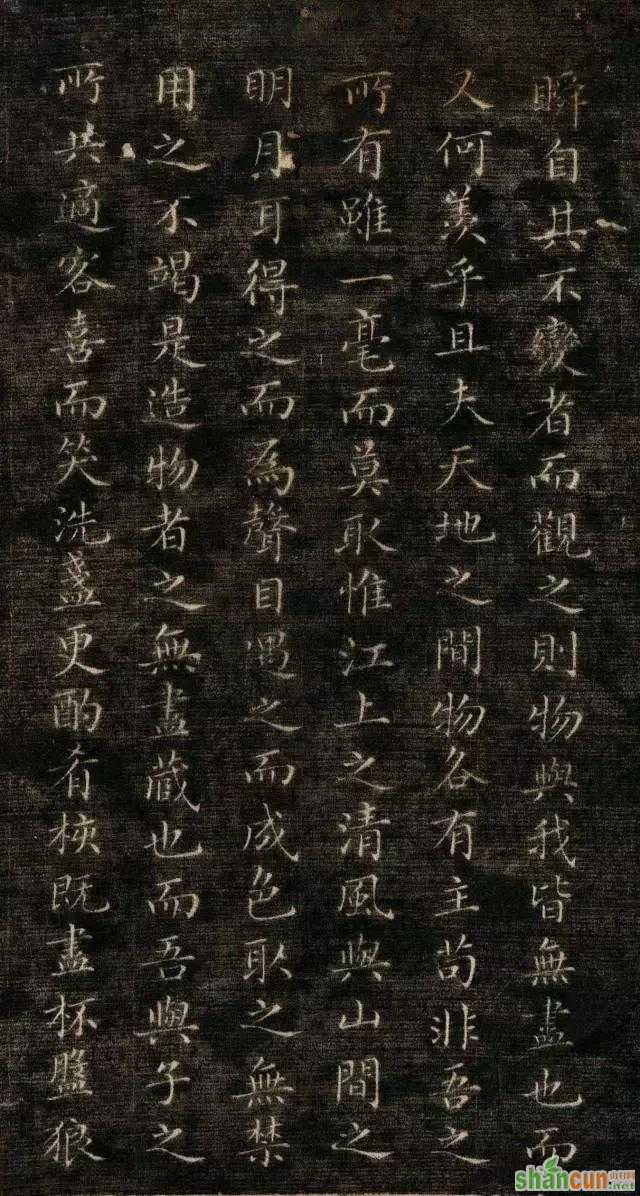 瞬自其不變者而觀之則物與我皆無盡也而
又何羨乎且夫天地之間物各有主苟非吾之
所有雖一毫而莫取惟江上之清風與山間之
明月耳得之而為聲目遇之而成色取之無禁
用之不竭是造物者之無盡藏也而吾與子之
所共適客喜而笑洗盞更酌肴核既盡杯盤狼
shancun
.net